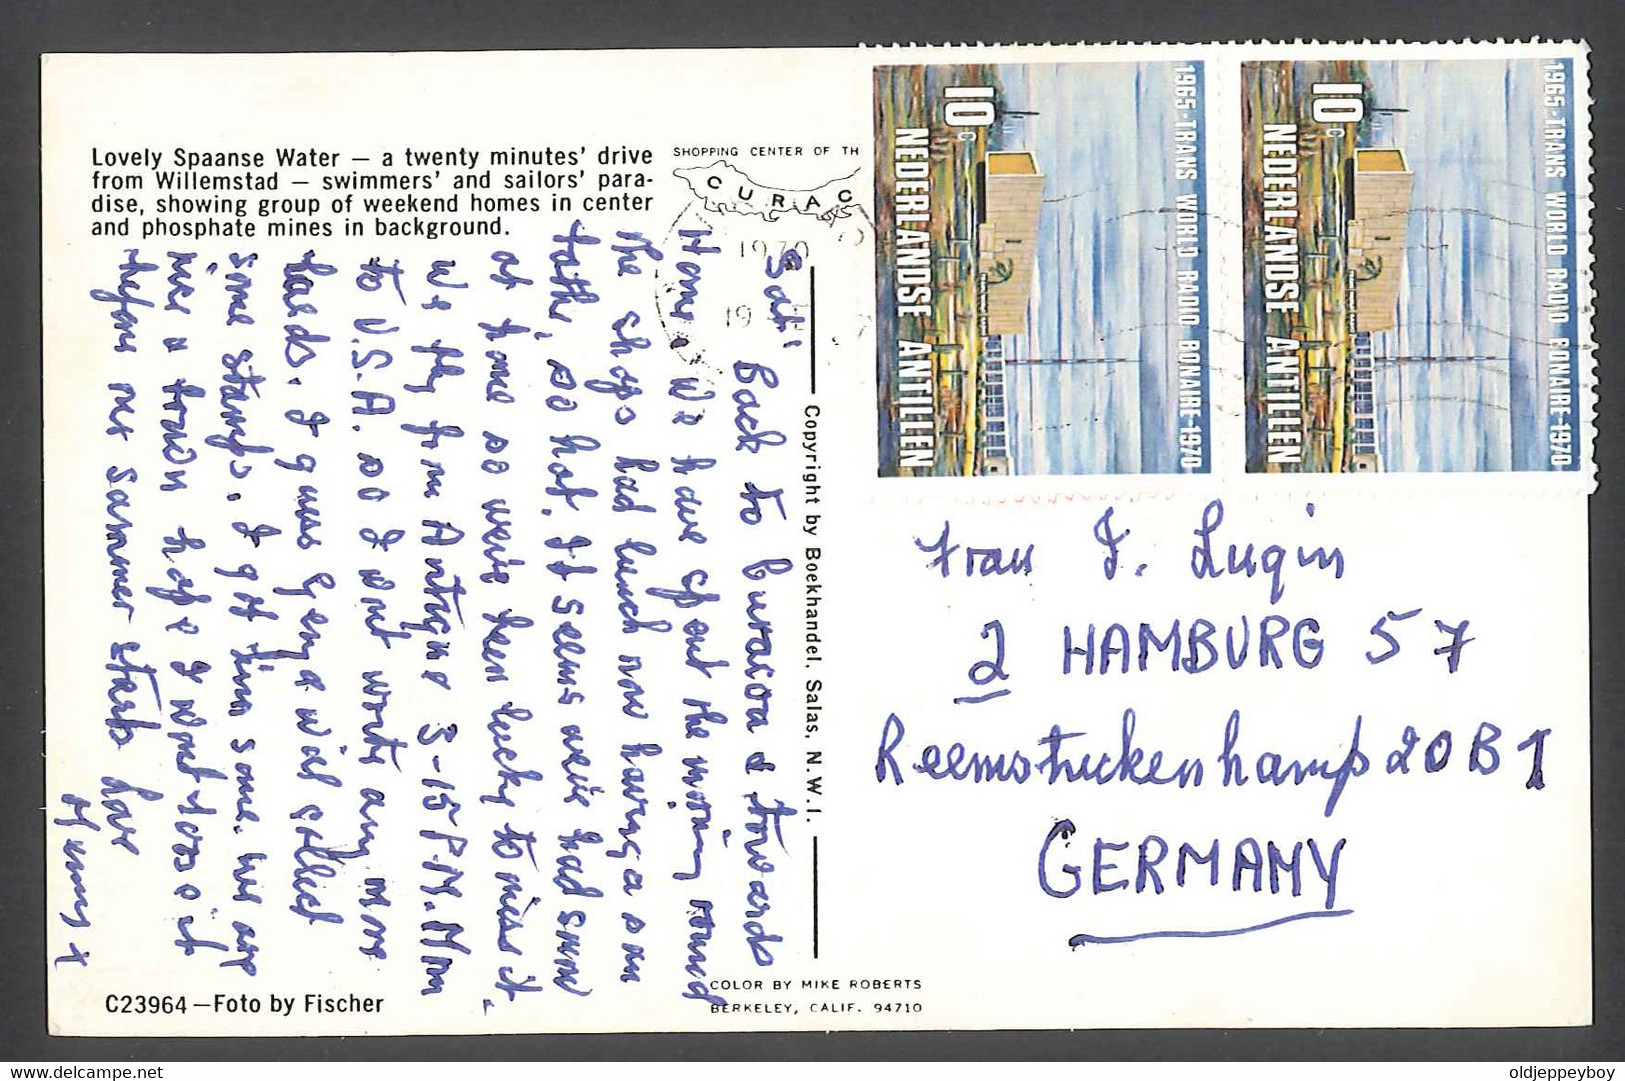 Lovely Spaanse Water — a twenty minutes' drive
from Willemstad — swimmers' and sailors' para-
dise, showing group of weekend homes in center
and phosphate mines in background.
SHOPPING CENTER OF TH
CURAC
1970
19
10c
NEDERLANDSE ANTILLEN
1965-TRANS WORLD RADIO BONAIRE-1970
10c
NEDERLANDSE ANTILLEN
1965-TRANS WORLD RADIO BONAIRE-1970
Sat.
Back to Curacoa & towards
Home. We have spent the morning round
the shops had lunch now having a sun
bathe, so hot. It seems weve had snow
at home so weve been lucky to miss it.
We fly from Antigua 3-15 P.M. Mon
to U.S.A. so I wont write any more
cards. I guess will collect
some stamps. I got him some. his are
a hope I wont loose it
before our summer starts Love
x
Copyright by Boekhandel. Salas. N.W.I.
Frau I. Lugin
2 HAMBURG 57
Reemstuckenkamp 20 B I
GERMANY
C23964—Foto by Fischer
COLOR BY MIKE ROBERTS
BERKELEY, CALIF. 94710
delcampe.net
oldjeppeyboy